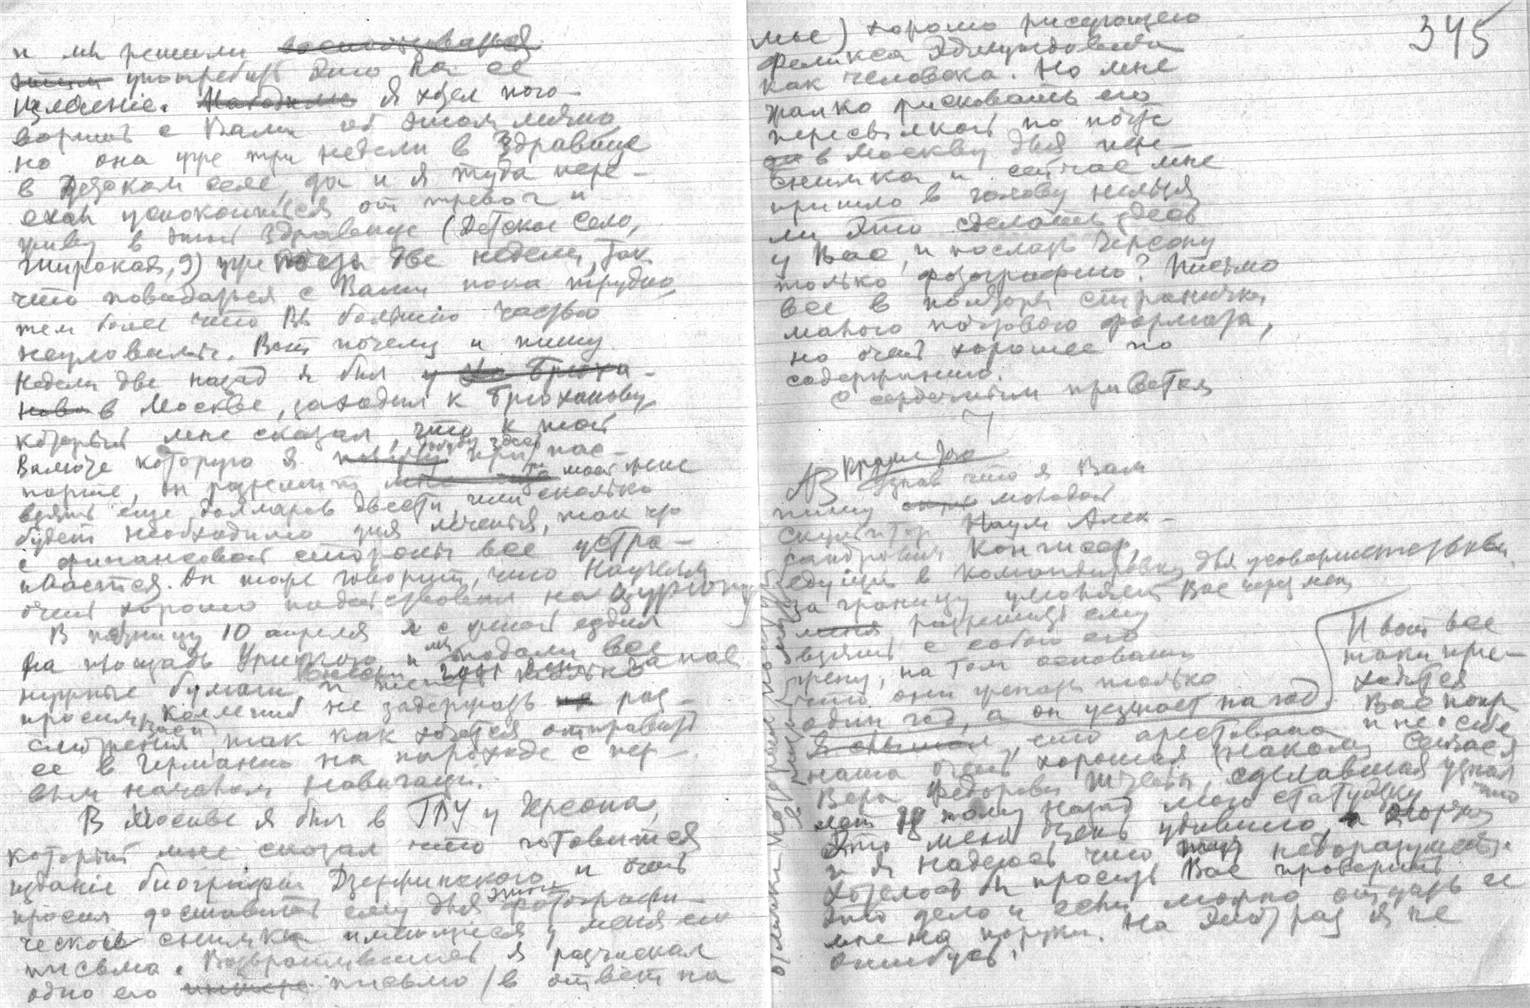 и мы решили воспользоваться
этим употребить это на ее
излечение. Находимс Я хотел пого-
ворить с Вами об этом лично
но она уже три недели в Здравнице
в Детском селе, да и я туда пере-
ехал успокоиться от тревог и
живу в этой здравнице (Детское Село,
Широкая, 9) уже две недели, так
что повидаться с Вами пока трудно,
тем более что Вы большею частью
неуловимы. Вот почему и пишу
Недели две назад я был у
в Москве, заходил к Брюханову,
который мне сказал, что к той
валюте которую я при пас-
порте, он разрешит моей жене
взять еще долларов двести, или сколько
будет необходимо для лечения, так что
с финансовой стороны все устра-
ивается. Он тоже говорит, что Наугейм
очень хорошо подействовал на Цурюпу
В пятницу 10 апреля я с женой ездил
на площадь Урицкого, и мы подали все
нужные бумаги, и теперь только
просим Вас не задержать раз-
решения, так как хочется отправить
ее в Германию на пароходе с пер-
вым началом навигации.
В Москве я был в ГПУ у Герсона,
который мне сказал что готовится
издание биографии Дзержинского и очень
просил доставить ему для этого фотографи-
ческого снимка имеющиеся у меня его
письма. Возвратившись я разыскал
одно его письмо (в ответ на
345
мое) хорошо рисующего
Феликса Эдмундовича
как человека. Но мне
жалко рисковать его
пересылкой по почте
в Москву для
снимка и сейчас мне
пришло в голову нельзя
ли это сделать здесь
у Вас, и послать Герсону
только фотографию? Письмо
все в полторы странички
малого почтового формата,
но очень хорошее по
содержанию.
С сердечным приветом
Узнав что я Вам
пишу молодой
скульптор Наум Алек-
сандрович Конгисер,
едущий в командировку для усовершенствования
за границу умоляет Вас через меня
меня разрешить ему
взять с собою его
жену, на том основании
что они женаты только
один год, а он уезжает на год
И вот все
таки при-
ходится
Вас
и не о себе
Сейчас я
узнал
что арестована
наша очень хорошая знакомая
Вера Федоровна Штейн, сделавшая
лет тому назад мою статуэтку
Это меня очень удивило,
и я надеюсь что недоразумение
Хотелось бы просить Вас проверить
это дело и если можно отдать ее
мне на поруки. На этот раз я не
ошибусь!